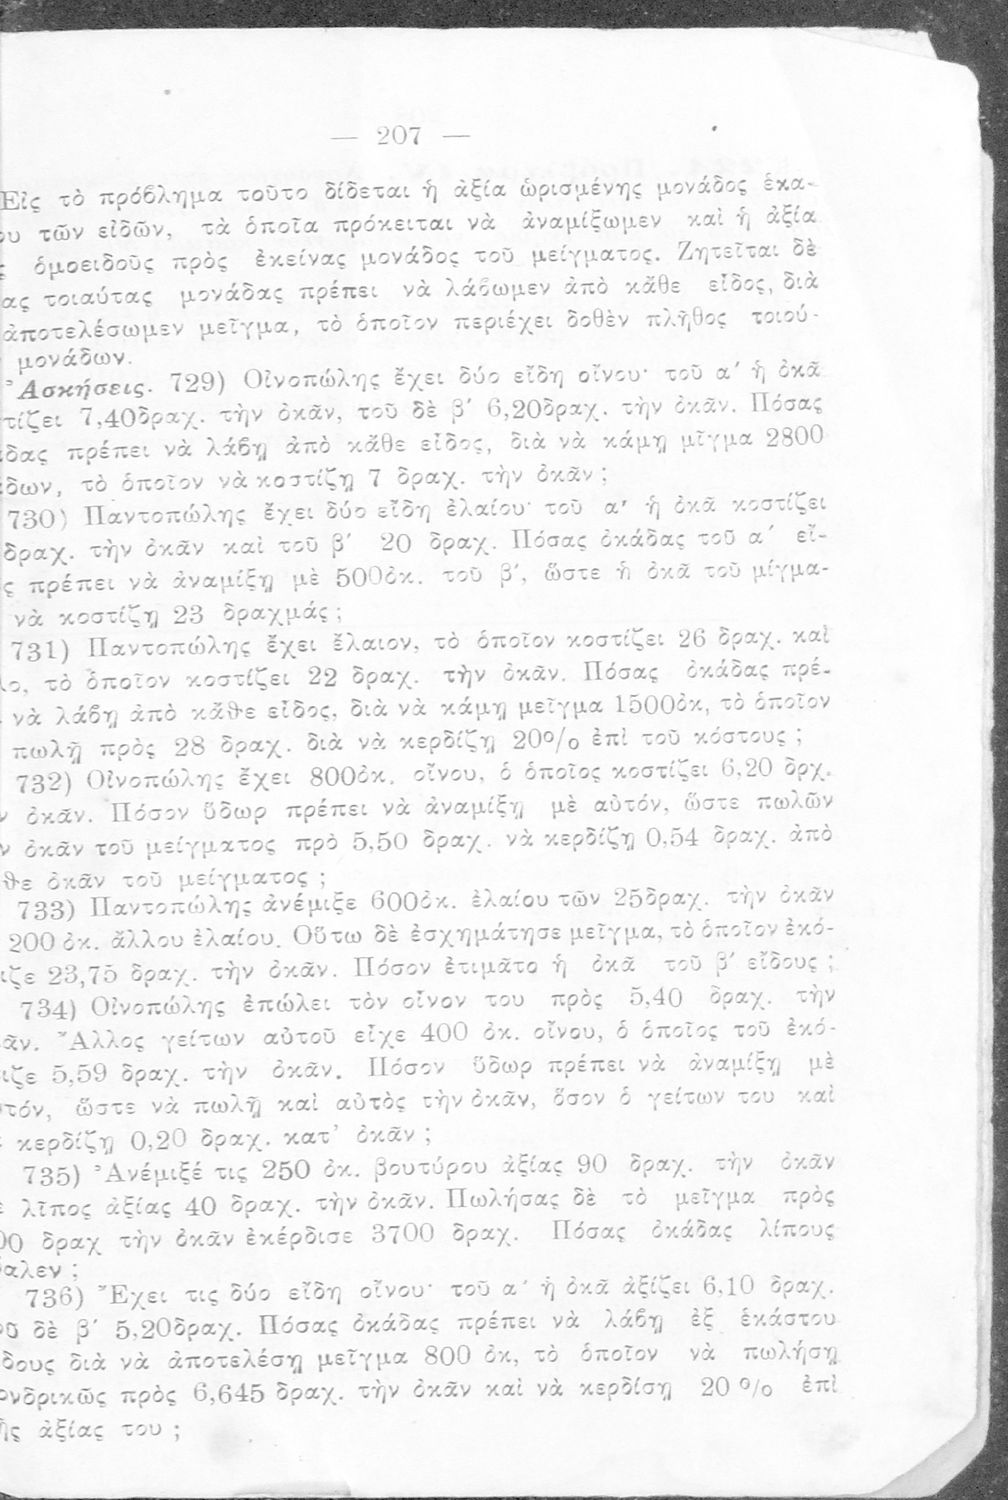 — 207 —
Εἰς τὸ πρόβλημα τοῦτο δίδεται ἡ ἀξία ὡρισμένης μονάδος ἑκα-
ου τῶν εἰδῶν, τὰ ὁποῖα πρόκειται νὰ ἀναμίξωμεν καὶ ἡ ἀξία
ς ὁμοειδοῦς πρὸς ἐκείνας μονάδος τοῦ μείγματος. Ζητεῖται δὲ
ας τοιαύτας μονάδας πρέπει νὰ λάβωμεν ἀπὸ κᾶθε εἶδος, διὰ
ἀποτελέσωμεν μεῖγμα, τὸ ὁποῖον περιέχει δοθὲν πλῆθος τοιού-
μονάδων.
Ἀσκήσεις. 729) Οἰνοπώλης ἔχει δύο εἴδη οἴνου· τοῦ α΄ ἡ ὀκᾶ
τίζει 7,40δραχ. τὴν ὀκᾶν, τοῦ δὲ β΄ 6,20δραχ. τὴν ὀκᾶν. Πόσας
δας πρέπει νὰ λάβῃ ἀπὸ κᾶθε εἶδος, διὰ νὰ κάμῃ μῖγμα 2800
δων, τὸ ὁποῖον νὰ κοστίζῃ 7 δραχ. τὴν ὀκᾶν;
730) Παντοπώλης ἔχει δύο εἴδη ἐλαίου· τοῦ α΄ ἡ ὀκᾶ κοστίζει
δραχ. τὴν ὀκᾶν καὶ τοῦ β΄ 20 δραχ. Πόσας ὀκάδας τοῦ α΄ εἴ-
ς πρέπει νὰ ἀναμίξῃ μὲ 500ὀκ. τοῦ β΄, ὥστε ἡ ὀκᾶ τοῦ μίγμα-
νὰ κοστίζῃ 23 δραχμάς;
731) Παντοπώλης ἔχει ἔλαιον, τὸ ὁποῖον κοστίζει 26 δραχ. καὶ
λο, τὸ ὁποῖον κοστίζει 22 δραχ. τὴν ὀκᾶν. Πόσας ὀκάδας πρέ-
νὰ λάβῃ ἀπὸ κᾶθε εἶδος, διὰ νὰ κάμῃ μεῖγμα 1500ὀκ, τὸ ὁποῖον
πωλῇ πρὸς 28 δραχ. διὰ νὰ κερδίζῃ 20% ἐπὶ τοῦ κόστους;
732) Οἰνοπώλης ἔχει 800ὀκ. οἴνου, ὁ ὁποῖος κοστίζει 6,20 δρχ.
ν ὀκᾶν. Πόσον ὕδωρ πρέπει νὰ ἀναμίξῃ μὲ αὐτόν, ὥστε πωλῶν
ν ὀκᾶν τοῦ μείγματος πρὸ 5,50 δραχ. νὰ κερδίζῃ 0,54 δραχ. ἀπὸ
θε ὀκᾶν τοῦ μείγματος;
733) Παντοπώλης ἀνέμιξε 600ὀκ. ἐλαίου τῶν 25δραχ. τὴν ὀκᾶν
200 ὀκ. ἄλλου ἐλαίου. Οὕτω δὲ ἐσχημάτησε μεῖγμα, τὸ ὁποῖον ἐκό-
ιζε 23,75 δραχ. τὴν ὀκᾶν. Πόσον ἐτιμᾶτο ἡ ὀκᾶ τοῦ β΄ εἴδους;
734) Οἰνοπώλης ἐπώλει τὸν οἶνον του πρὸς 5,40 δραχ. τὴν
ᾶν. Ἄλλος γείτων αὐτοῦ εἶχε 400 ὀκ. οἴνου, ὁ ὁποῖος τοῦ ἐκό-
ιζε 5,59 δραχ. τὴν ὀκᾶν. Πόσον ὕδωρ πρέπει νὰ ἀναμίξῃ μὲ
τόν, ὥστε νὰ πωλῇ καὶ αὐτὸς τὴν ὀκᾶν, ὅσον ὁ γείτων του καὶ
κερδίζῃ 0,20 δραχ. κατ' ὀκᾶν;
735) Ἀνέμιξέ τις 250 ὀκ. βουτύρου ἀξίας 90 δραχ. τὴν ὀκᾶν
ὲ λῖπος ἀξίας 40 δραχ. τὴν ὀκᾶν. Πωλήσας δὲ τὸ μεῖγμα πρὸς
00 δραχ τὴν ὀκᾶν ἐκέρδισε 3700 δραχ. Πόσας ὀκάδας λίπους
αλεν;
736) Ἔχει τις δύο εἴδη οἴνου· τοῦ α΄ ἡ ὀκᾶ ἀξίζει 6,10 δραχ.
οῦ δὲ β΄ 5,20δραχ. Πόσας ὀκάδας πρέπει νὰ λάβῃ ἐξ ἑκάστου
δους διὰ νὰ ἀποτελέσῃ μεῖγμα 800 ὀκ, τὸ ὁποῖον νὰ πωλήσῃ
ονδρικῶς πρὸς 6,645 δραχ. τὴν ὀκᾶν καὶ νὰ κερδίσῃ 20 % ἐπὶ
ῆς ἀξίας του;